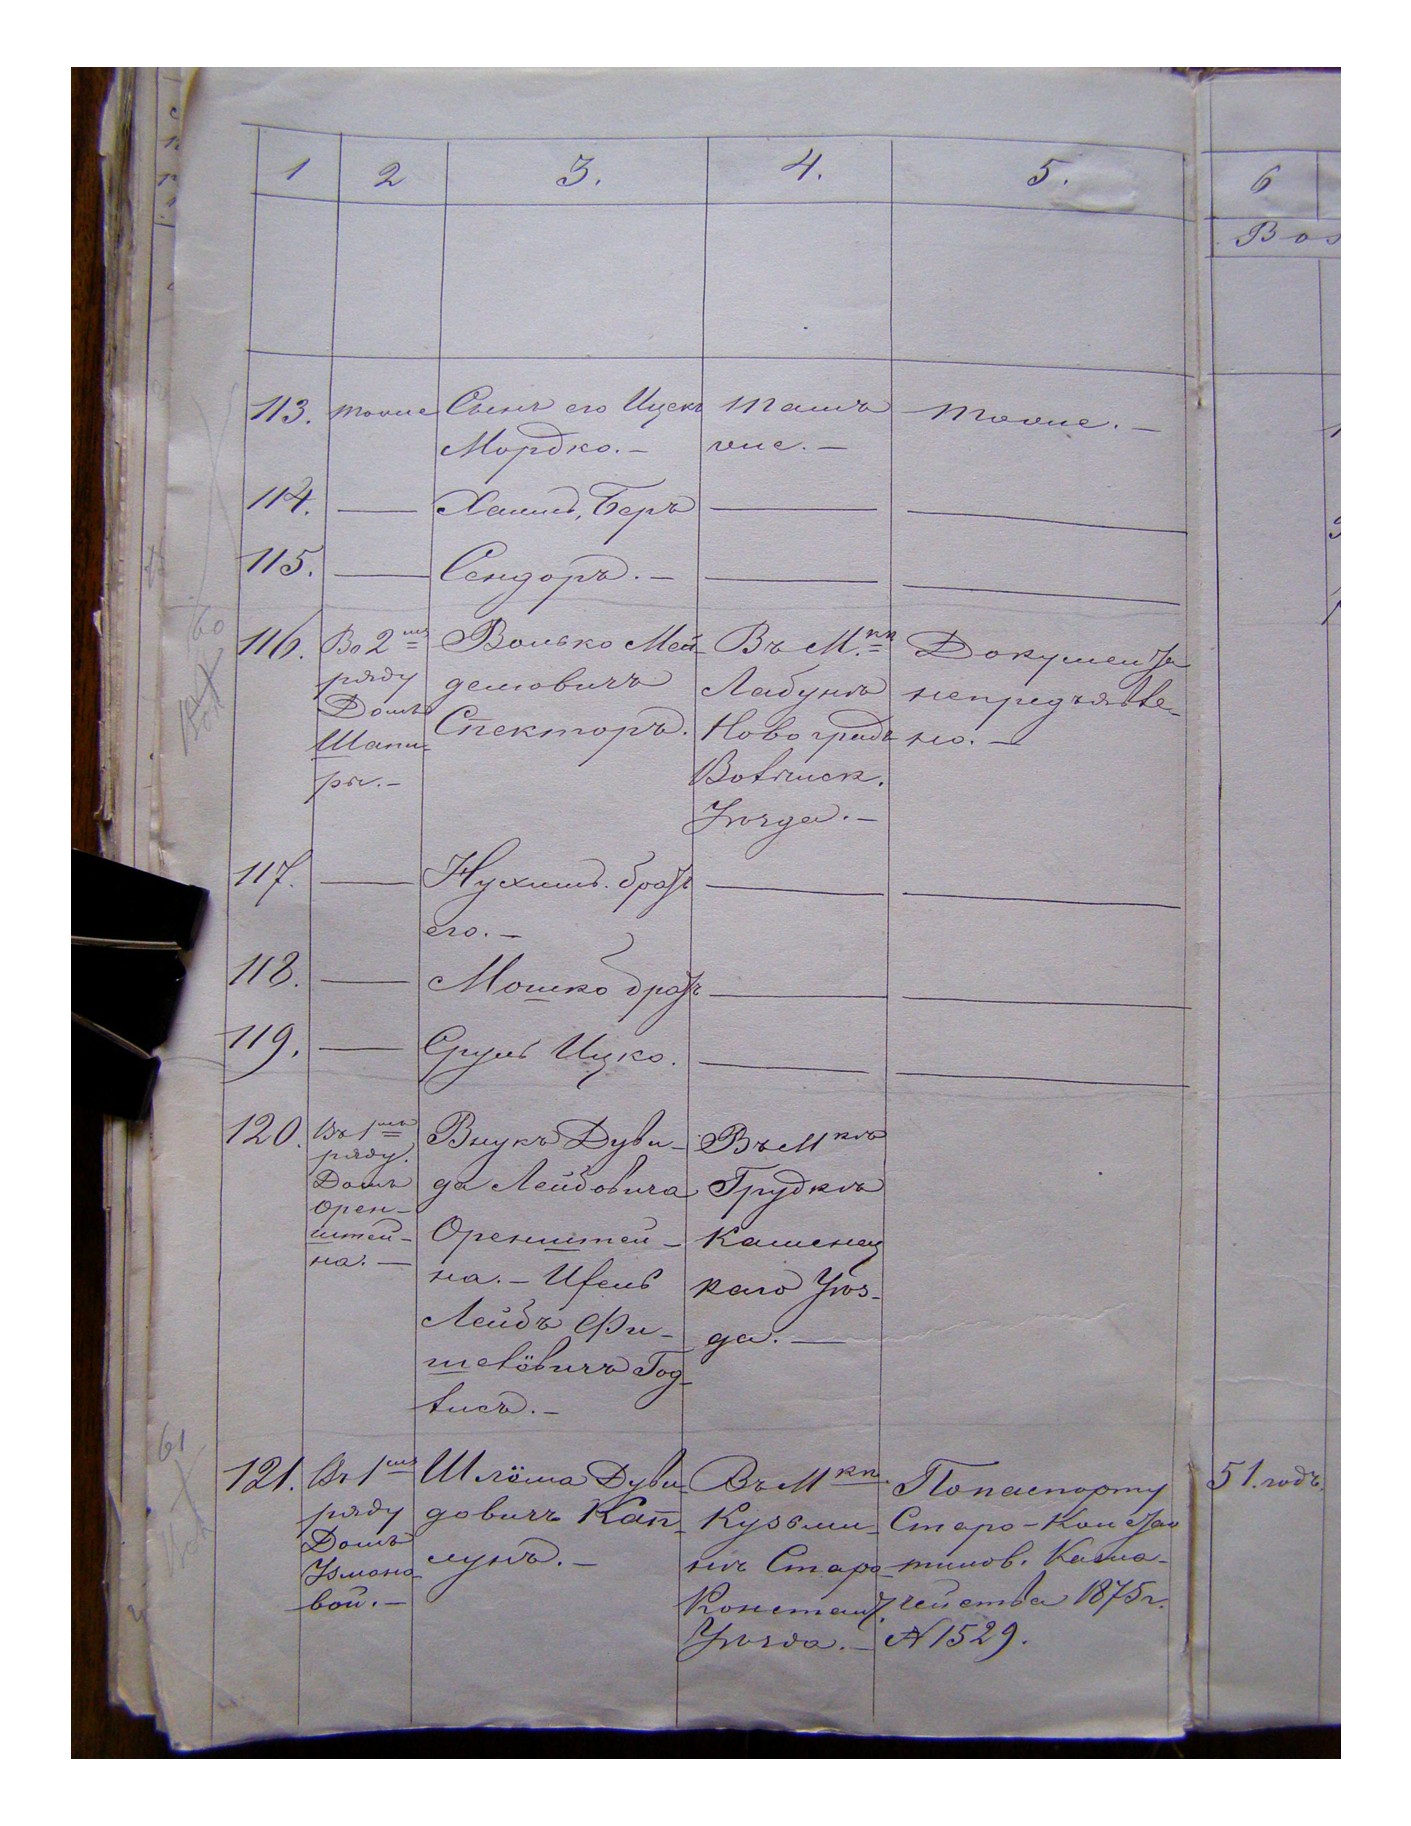 1 2 3. 4. 5. 6
Воз
113. тоже Сынъ его Ицекъ Тамъ тоже. —
Мордко. — же. —
114. — Хаимъ, Беръ — —
115. — Сендоръ. — — —
60
116. Во 2мъ Волько Мей- Въ М.кѣ Документа
ряду
Домъ
Шапи-
ры. —
деловичъ
Спекторъ.
Лабунь
Новоградъ
Волынск.
Уѣзда. —
непредъявле-
но. —
117. — Нухимъ. братъ — —
его. —
118. — Мошко братъ — —
119. — Сруль Ицко. — —
120. Въ 1мъ
ряду.
Домъ
Орен-
штей-
на. —
Внукъ Дуви-
да Лейбовича
Оренштей-
на. —
Лейбъ Фи-
шелёвичъ
Въ Мкѣ
Грудкѣ
Каменец
каго Уѣз-
да. —
61
121. Въ 1мъ
ряду
Домъ
вой. —
Шлёма Дуви-
довичъ Кап-
лунъ. —
Въ Мкѣ
Кузьми-
нѣ Старо
Констант.
Уѣзда. —
По паспорту
Старо-Констан
тинов. Казна-
чейства 1875 г.
№ 1529.
51. годъ.